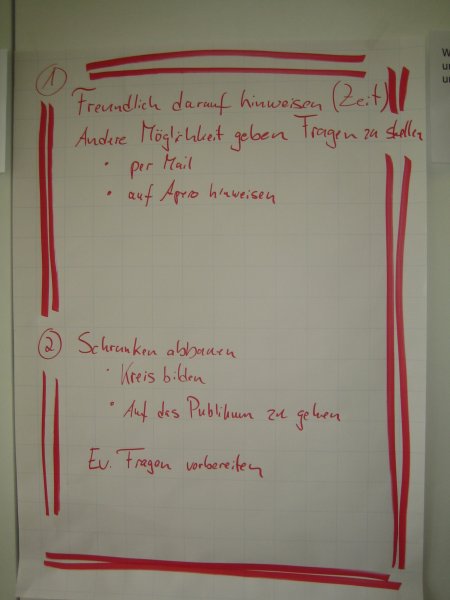 ①
Freundlich darauf hinweisen (Zeit)
Andere Möglichkeit geben Fragen zu stellen
• per Mail
• auf Apero hinweisen
② Schranken abbauen
• Kreis bilden
• Auf das Publikum zu gehen
Ev. Fragen vorbereiten